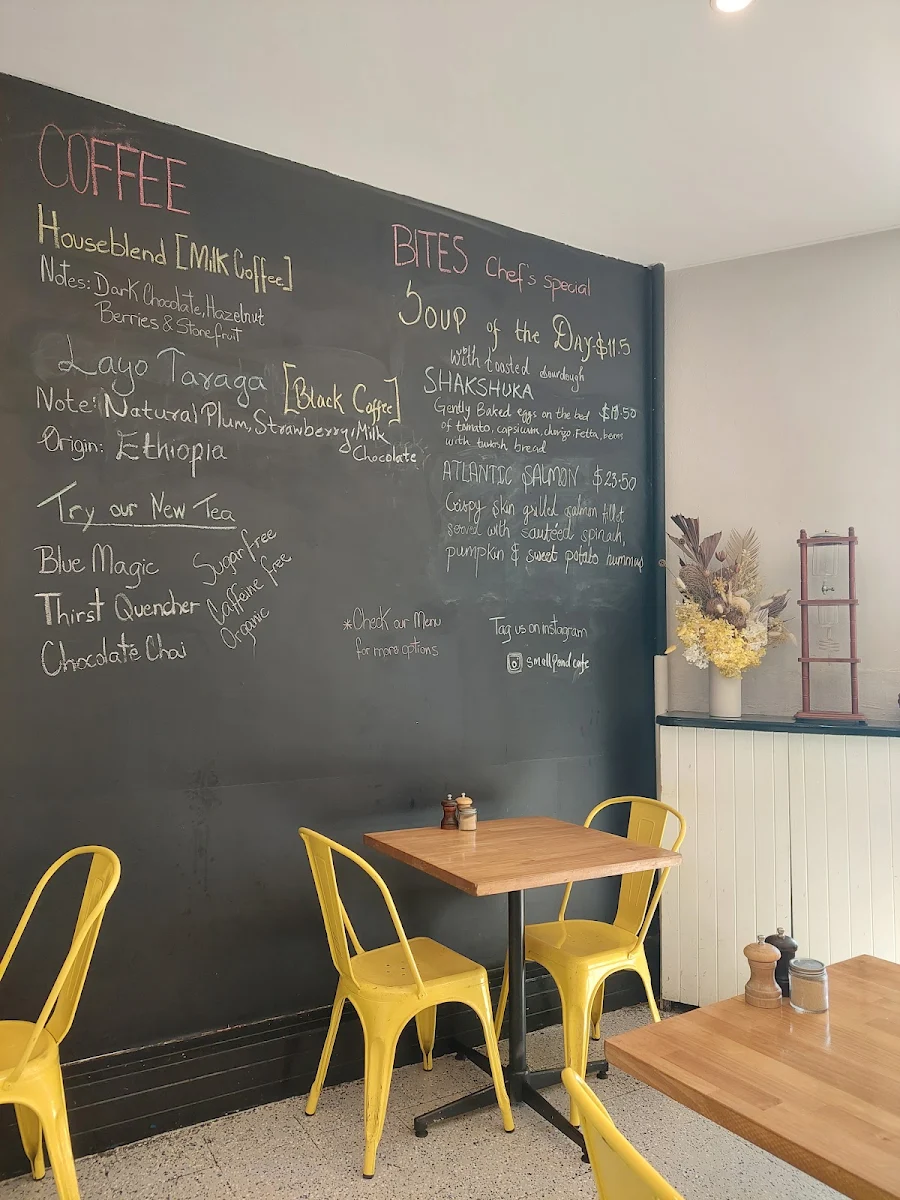 COFFEE
Houseblend [Milk Coffee]
Notes: Dark Chocolate, Hazelnut
Berries & Stonefruit
Layo Taraga [Black Coffee]
Note: Natural Plum, Strawberry, Milk
Chocolate
Origin: Ethiopia
Try our New Tea
Blue Magic
Thirst Quencher
Chocolate Chai
Sugar free
Caffeine free
Organic
BITES Chef's special
Soup of the Day-$11.5
with toasted sourdough
SHAKSHUKA
Gently Baked eggs on the bed
of tomato, capsicum, chorizo, Fetta, beans
with turkish bread
ATLANTIC SALMON $23.50
Crispy skin grilled salmon fillet
served with sautéed spinach,
pumpkin & sweet potato hummus
*Check our Menu
for more options
Tag us on instagram
smallpond cafe